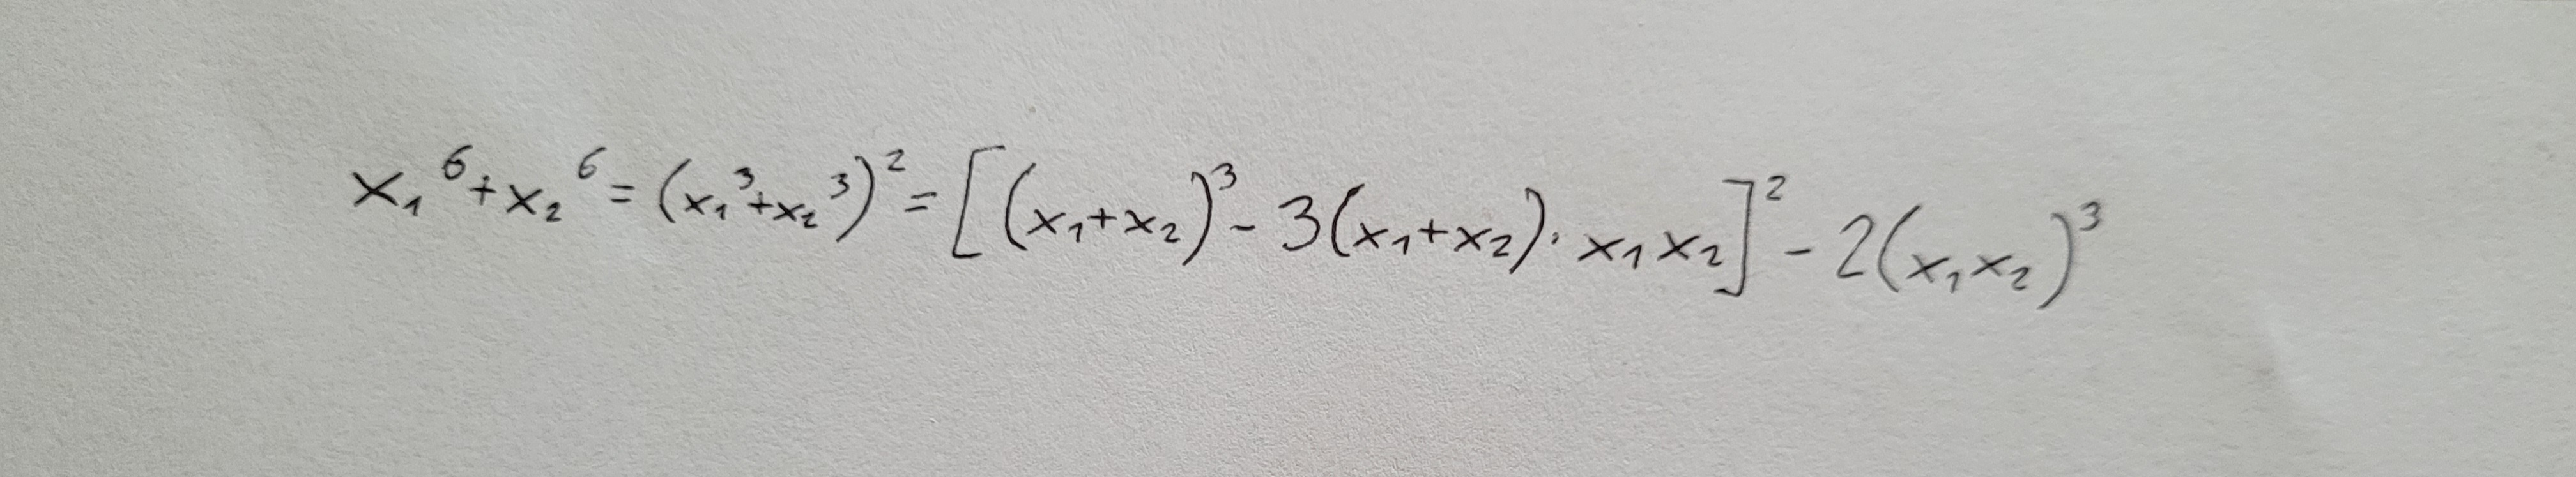 x₁⁶+x₂⁶=(x₁³+x₂³)²=[(x₁+x₂)³-3(x₁+x₂)·x₁x₂]²-2(x₁x₂)³